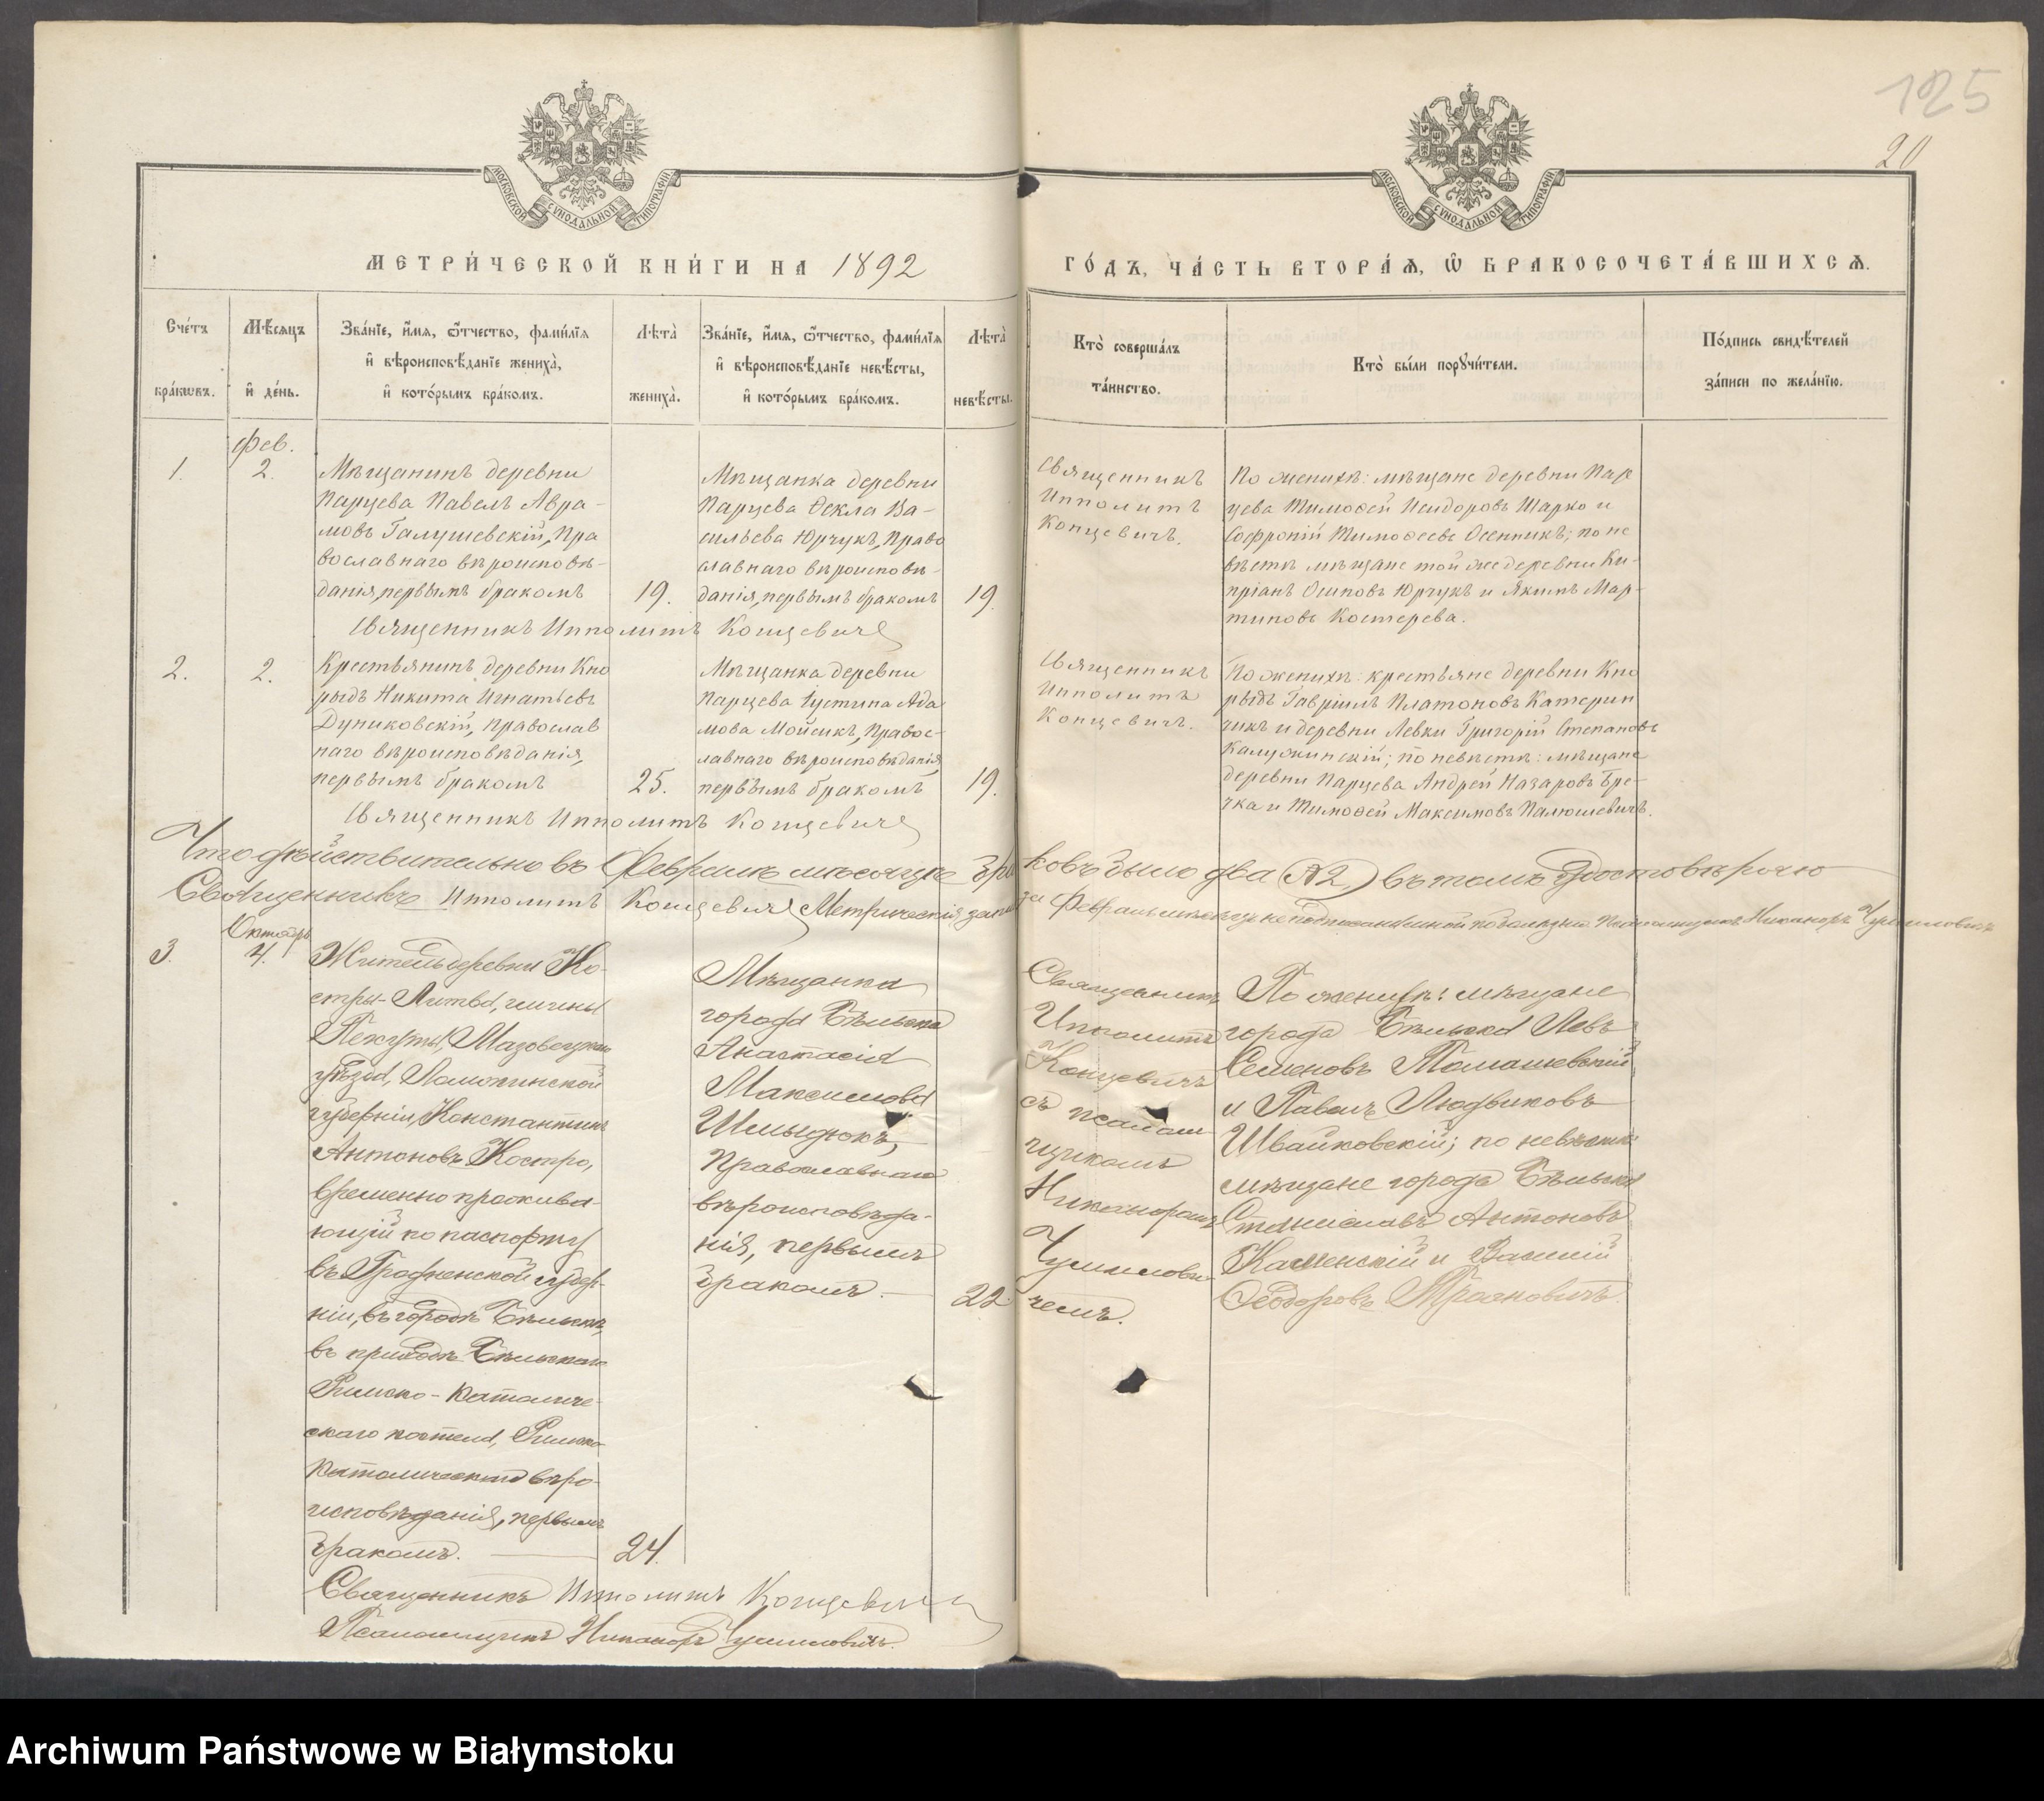 125
20
МОСКОВСКОЙ СУНОДАЛЬНОЙ ТИПОГРАФІИ
МОСКОВСКОЙ СУНОДАЛЬНОЙ ТИПОГРАФІИ
МЕТРИ́ЧЕСКОЙ КНИ́ГИ НА 1892
ГО́ДЪ, ЧА́СТЬ ВТОРА́Ѧ, Ѡ҆ БРАКОСОЧЕТА́ВШИХСѦ.
Сче́тъ
бра́кѡвъ.
Мѣ́сѧцъ
и҆ де́нь.
Зва́нїе, и҆́мѧ, ѻ҆́тчество, фами́лїѧ
и҆ вѣроисповѣ́данїе жениха̀,
и҆ кото́рымъ бра́комъ.
Лѣта̀
жениха̀.
Зва́нїе, и҆́мѧ, ѻ҆́тчество, фами́лїѧ
и҆ вѣроисповѣ́данїе невѣ́сты,
и҆ кото́рымъ бра́комъ.
Лѣта̀
невѣ́сты.
Кто̀ соверша́лъ
та́инство.
Кто̀ бы́ли порꙋчи́тели.
По́дпись свидѣ́телей
за́писи по жела́нїю.
Фев.
1.
2.
Мѣщанинъ деревни
Парцева Павелъ Авра-
мовъ Галушевскій, Пра
вославнаго вѣроисповѣ-
данія, первымъ бракомъ
19.
Мѣщанка деревни
Парцева Ѳекла Ва-
сильева Юрчукъ, Право
славнаго вѣроисповѣ-
данія, первымъ бракомъ
19.
Священникъ
Ипполитъ
Концевичъ.
По женихѣ: мѣщане деревни Пар
цева Тимоѳей Исидоровъ Шарко и
Софроній Тимоѳеевъ Осенникъ; по не
вѣстѣ мѣщане той же деревни Ки-
пріанъ Осиповъ Юрчукъ и Якимъ Мар-
тиновъ Костерева.
Священникъ Ипполитъ Концевичъ
2.
2.
Крестьянинъ деревни Кно
рыдъ Никита Игнатьевъ
Дуниковскій, православ
наго вѣроисповѣданія,
первымъ бракомъ
25.
Мѣщанка деревни
Парцева Іустина Ада
мова Мойсикъ, Правос-
лавнаго вѣроисповѣданія,
первымъ бракомъ
19.
Священникъ
Ипполитъ
Концевичъ.
По женихѣ: крестьяне деревни Кно
рыдъ Гавріилъ Платоновъ Катерин
чикъ и деревни Левки Григорій Степановъ
Калужинскій; по невѣстѣ: мѣщане
деревни Парцева Андрей Назаровъ Гре-
чка и Тимоѳей Максимовъ Палюшевичъ.
Священникъ Ипполитъ Концевичъ
Что дѣйствительно въ Февралѣ мѣсяцѣ бра
ковъ было два (№2.) въ томъ удостовѣряю
Священникъ Ипполитъ Концевичъ Метрическія запи
за Февраль мѣсяцъ не подписаны мной по болѣзни Псаломщикъ Никаноръ
Октябрь
3.
4.
Житель деревни Ко-
стры-Литва, гмины
Пекуты, Мазовецкаго
уѣзда, Ломжинской
губерніи, Константинъ
Антоновъ Костро,
временно прожива-
ющій по паспорту
въ Гродненской губер-
ніи, въ городѣ Бѣльскѣ,
въ приходѣ Бѣльскаго
Римско-Католиче-
скаго костела, Римско-
Католическаго вѣро-
исповѣданія, первымъ
бракомъ.
24.
Мѣщанка
города Бѣльска
Анастасія
Максимова
Шмыдюкъ,
Православнаго
вѣроисповѣда-
нія, первымъ
бракомъ.
22
Священникъ
Ипполитъ
Концевичъ
съ псалом-
щикомъ
Никаноромъ
чемъ.
По женихѣ: мѣщане
города Бѣльска Левъ
Семеновъ Томашевскій
и Павелъ Людвиковъ
Швайковскій; по невѣстѣ:
мѣщане города Бѣльска
Станиславъ Антоновъ
Каменскій и Василій
Ѳеодоровъ Трояновичъ.
Священникъ Ипполитъ Концевичъ
Псаломщикъ Никаноръ
Archiwum Państwowe w Białymstoku